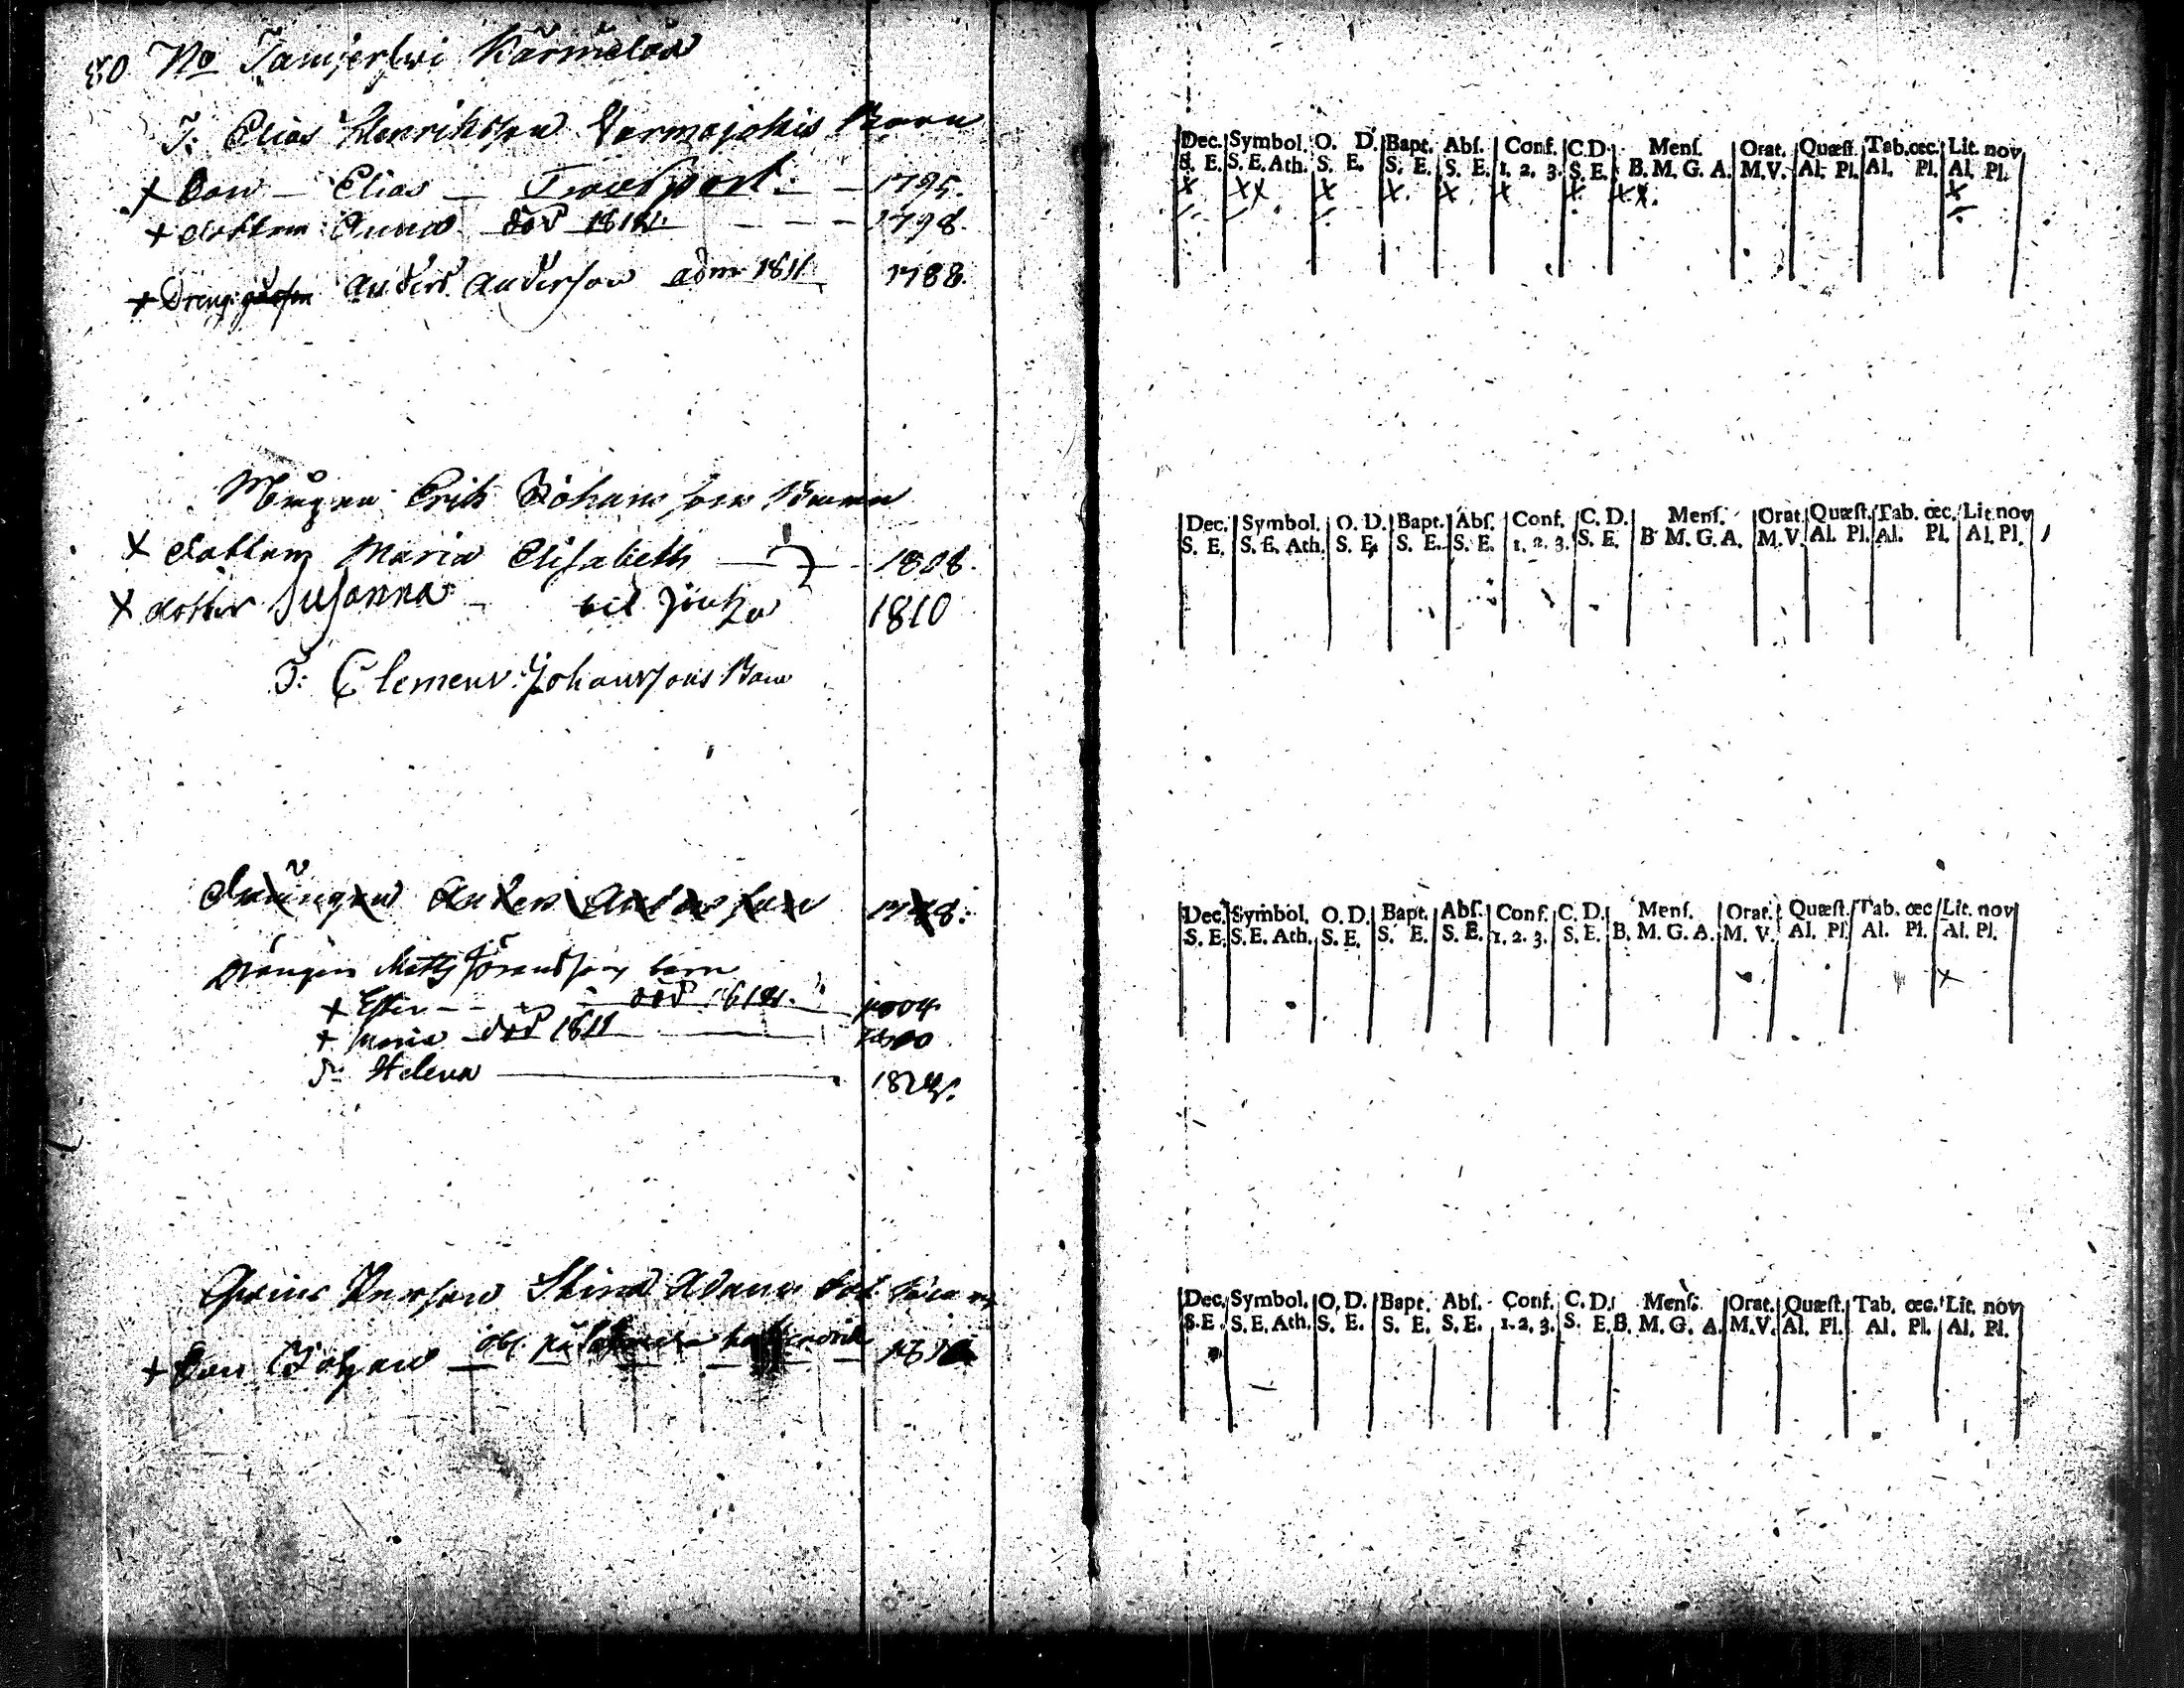 80 No Tamjerfwi Kärmelax
T: Elias Henrikssons Varmajokis Barn
+ Son — Elias — Transport — 1795.
+ dottren Anna död 1812. — — 1798.
+ Dreng: gåssen Anders Andersson adm 1811 1788.
Drängen Erik Johansson Barn
X dottren Maria Elisabeth — 1808.
X dotter Susanna — til 1810
T: Clemens Johanssons Barn
Drängen Anders Andersson
Drängens Matts Göransson barn
+ Ester — död
+ Maria — död 1811
Dr Helena —
Stina Adams dot. Barn
+ Son Johan —
Dec. Symbol. O. D. Bapt. Abſ. Conf. C.D. Menſ. Orat. Quæſt. Tab.œc. Lit. nov
S. E. S. E. Ath. S. E. S. E. S. E. 1. 2. 3. S. E. B. M. G. A. M.V. Al. Pl. Al. Pl. Al. Pl.
X XX X X. X X X. X.X. X
Dec. Symbol. O. D. Bapt. Abſ. Conf. C. D. Menſ. Orat. Quæſt. Tab. œc. Lit. nov
S. E. S. E. Ath. S. E. S. E. S. E. 1. 2. 3. S. E. B M. G. A. M.V. Al. Pl. Al. Pl. Al. Pl.
Dec. Symbol. O. D. Bapt. Abſ. Conf. C. D. Menſ. Orat. Quæſt. Tab. œc Lit. nov
S. E. S. E. Ath. S. E. S. E. S. E. 1. 2. 3. S. E. B. M. G. A. M. V. Al. Pl. Al. Pl. Al. Pl.
X
Dec. Symbol. O. D. Bapt. Abſ. Conf. C. D. Menſ. Orat. Quæſt. Tab. œc. Lit. nov
S. E. S. E. Ath. S. E. S. E. S. E. 1. 2. 3. S. E. B. M. G. A. M.V. Al. Pl. Al. Pl. Al. Pl.